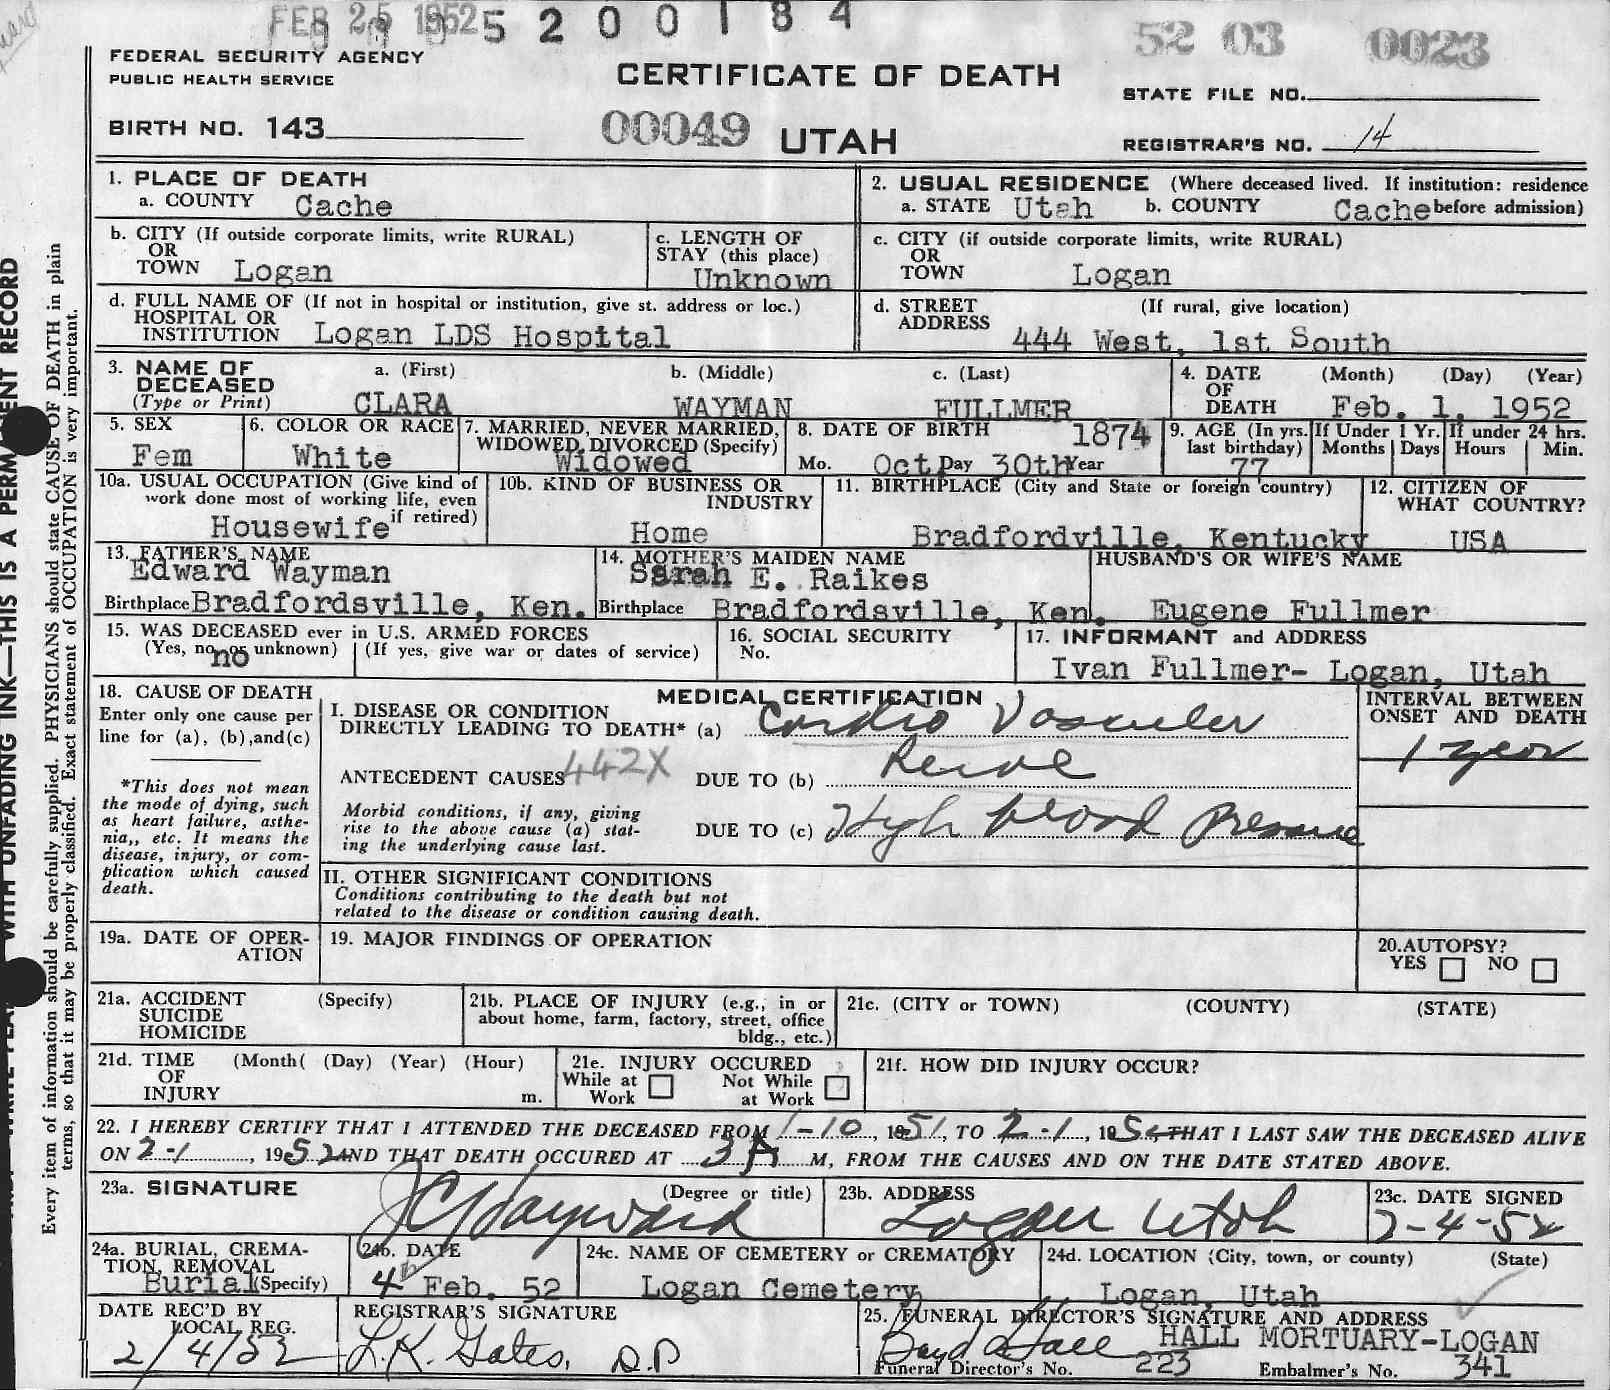 FEB 25 1952 5 2 0 0 1 8 4
52 03 0023
FEDERAL SECURITY AGENCY
PUBLIC HEALTH SERVICE
CERTIFICATE OF DEATH
STATE FILE NO.
BIRTH NO. 143
00049 UTAH
REGISTRAR'S NO. 14
1. PLACE OF DEATH
a. COUNTY Cache
2. USUAL RESIDENCE (Where deceased lived. If institution: residence
a. STATE Utah b. COUNTY Cache before admission)
b. CITY (If outside corporate limits, write RURAL)
OR
TOWN Logan
c. LENGTH OF
STAY (this place)
Unknown
c. CITY (if outside corporate limits, write RURAL)
OR
TOWN Logan
d. FULL NAME OF (If not in hospital or institution, give st. address or loc.)
HOSPITAL OR
INSTITUTION Logan LDS Hospital
d. STREET (If rural, give location)
ADDRESS 444 West, 1st South
3. NAME OF DECEASED (Type or Print)
a. (First) b. (Middle) c. (Last)
CLARA WAYMAN FULLMER
4. DATE OF DEATH (Month) (Day) (Year)
Feb. 1, 1952
5. SEX
Fem
6. COLOR OR RACE
White
7. MARRIED, NEVER MARRIED,
WIDOWED, DIVORCED (Specify)
Widowed
8. DATE OF BIRTH 1874
Mo. Oct Day 30th Year
9. AGE (In yrs. last birthday)
77
If Under 1 Yr.
Months Days
If under 24 hrs.
Hours Min.
10a. USUAL OCCUPATION (Give kind of
work done most of working life, even
if retired)
Housewife
10b. KIND OF BUSINESS OR
INDUSTRY
Home
11. BIRTHPLACE (City and State or foreign country)
Bradfordville, Kentucky
12. CITIZEN OF
WHAT COUNTRY?
USA
13. FATHER'S NAME
Edward Wayman
Birthplace Bradfordsville, Ken.
14. MOTHER'S MAIDEN NAME
Sarah E. Raikes
Birthplace Bradfordsville, Ken.
HUSBAND'S OR WIFE'S NAME
Eugene Fullmer
15. WAS DECEASED ever in U.S. ARMED FORCES
(Yes, no, or unknown) (If yes, give war or dates of service)
no
16. SOCIAL SECURITY
No.
17. INFORMANT and ADDRESS
Ivan Fullmer- Logan, Utah
18. CAUSE OF DEATH
Enter only one cause per
line for (a), (b), and (c)
*This does not mean
the mode of dying, such
as heart failure, asthe-
nia,, etc. It means the
disease, injury, or com-
plication which caused
death.
MEDICAL CERTIFICATION
I. DISEASE OR CONDITION
DIRECTLY LEADING TO DEATH* (a) Cardio Vascular
ANTECEDENT CAUSES 442X DUE TO (b)
Morbid conditions, if any, giving
rise to the above cause (a) stat-
ing the underlying cause last.
DUE TO (c) High blood pressure
INTERVAL BETWEEN
ONSET AND DEATH
1 year
II. OTHER SIGNIFICANT CONDITIONS
Conditions contributing to the death but not
related to the disease or condition causing death.
19a. DATE OF OPER-
ATION
19. MAJOR FINDINGS OF OPERATION
20. AUTOPSY?
YES NO
21a. ACCIDENT (Specify)
SUICIDE
HOMICIDE
21b. PLACE OF INJURY (e.g., in or
about home, farm, factory, street, office
bldg., etc.)
21c. (CITY or TOWN) (COUNTY) (STATE)
21d. TIME (Month( (Day) (Year) (Hour)
OF
INJURY m.
21e. INJURY OCCURED
While at Work Not While at Work
21f. HOW DID INJURY OCCUR?
22. I HEREBY CERTIFY THAT I ATTENDED THE DECEASED FROM 1-10, 1951, TO 2-1, 1952 THAT I LAST SAW THE DECEASED ALIVE
ON 2-1, 1952 AND THAT DEATH OCCURED AT 3 A M, FROM THE CAUSES AND ON THE DATE STATED ABOVE.
23a. SIGNATURE (Degree or title)
J C Hayward
23b. ADDRESS
Logan Utah
23c. DATE SIGNED
2-4-52
24a. BURIAL, CREMA-
TION, REMOVAL
Burial (Specify)
24b. DATE
4 Feb. 52
24c. NAME OF CEMETERY or CREMATORY
Logan Cemetery
24d. LOCATION (City, town, or county) (State)
Logan, Utah
DATE REC'D BY
LOCAL REG.
2/4/52
REGISTRAR'S SIGNATURE
L.K. Gates, D.P
25. FUNERAL DIRECTOR'S SIGNATURE AND ADDRESS
Boyd Hall HALL MORTUARY-LOGAN
Funeral Director's No. 223 Embalmer's No. 341
WITH UNFADING INK—THIS IS A PERMANENT RECORD
Every item of information should be carefully supplied. PHYSICIANS should state CAUSE OF DEATH in plain
terms, so that it may be properly classified. Exact statement of OCCUPATION is very important.